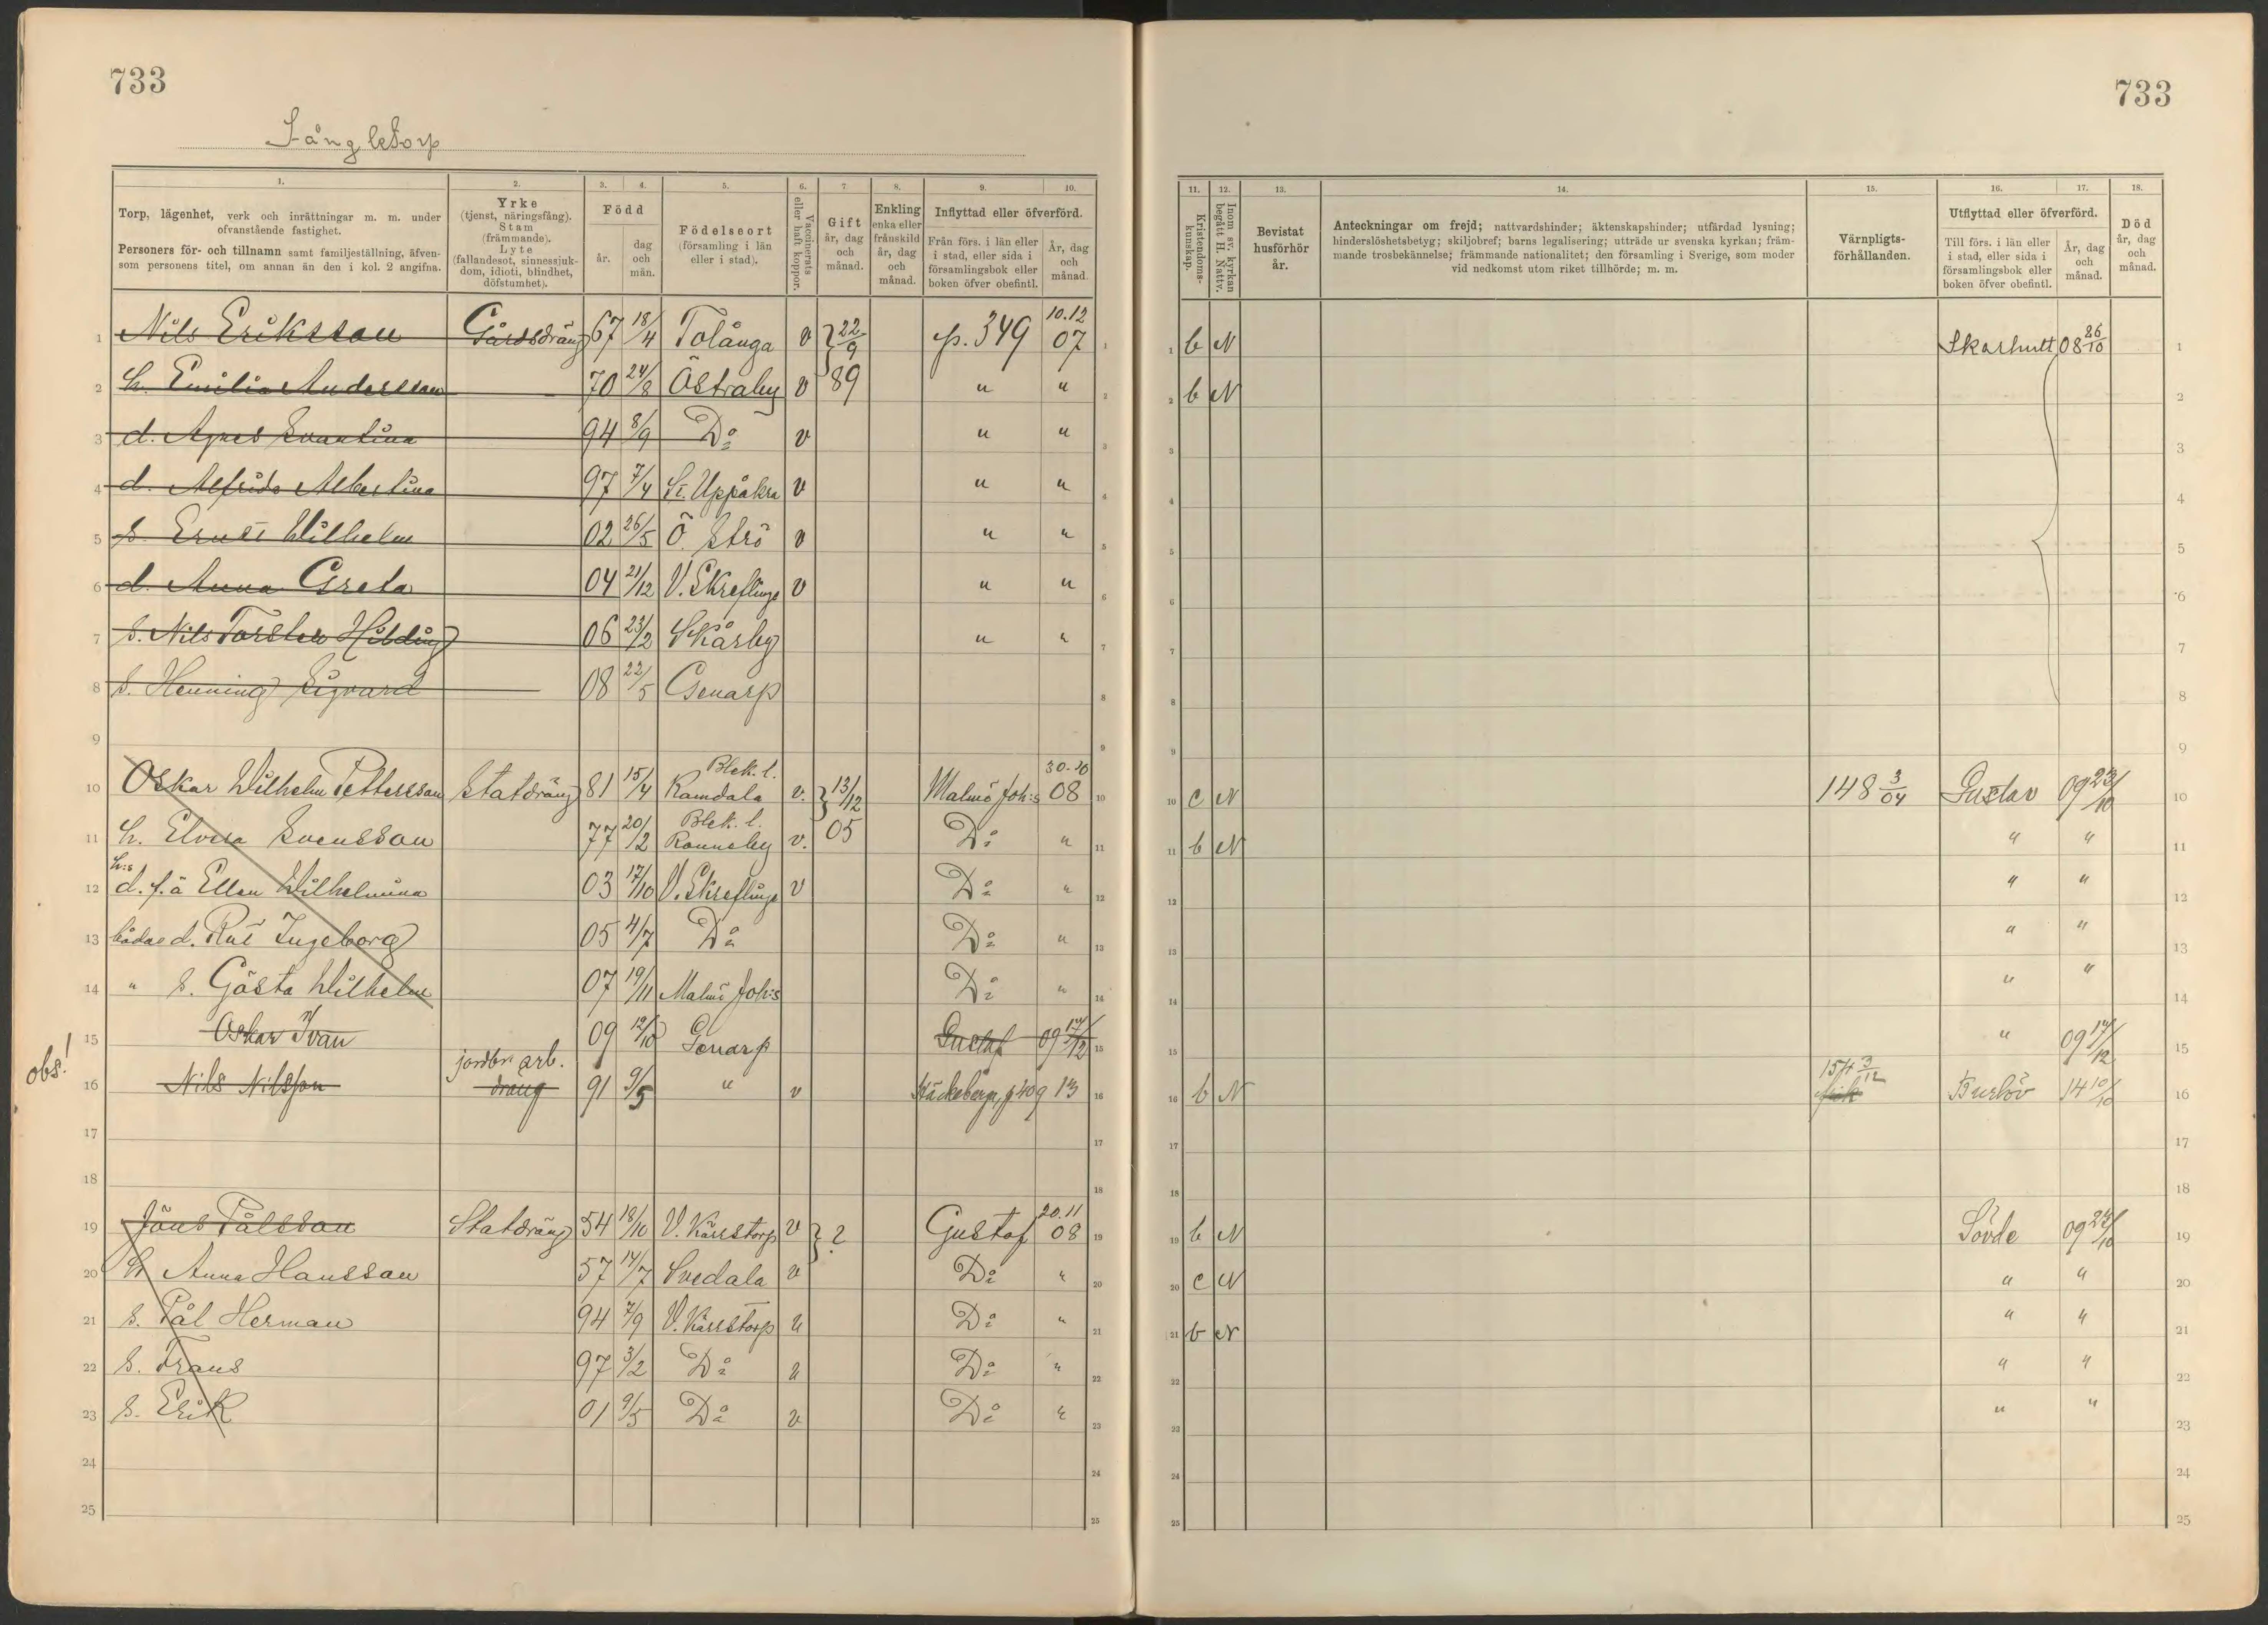 733
733
Långletorp
1. 2. 3. 4. 5. 6. 7. 8. 9. 10.
Torp, lägenhet, verk och inrättningar m. m. under
ofvanstående fastighet.
Personers för- och tillnamn samt familjeställning, äfven-
som personens titel, om annan än den i kol. 2 angifna.
Yrke
(tjenst, näringsfång).
Stam
(främmande).
Lyte
(fallandesot, sinnessjuk-
dom, idioti, blindhet,
döfstumhet).
Född
år.
dag
och
mån.
Födelseort
(församling i län
eller i stad).
Vaccinerats
eller haft koppor.
Gift
år, dag
och
månad.
Enkling
enka eller
frånskild
år, dag
och
månad.
Inflyttad eller öfverförd.
Från förs. i län eller
i stad, eller sida i
församlingsbok eller
boken öfver obefintl.
År, dag
och
månad.
11. 12. 13. 14. 15. 16. 17. 18.
Kristendoms-
kunskap.
Inom sv. kyrkan
begått H. Nattv.
Bevistat
husförhör
år.
Anteckningar om frejd; nattvardshinder; äktenskapshinder; utfärdad lysning;
hinderslöshetsbetyg; skiljobref; barns legalisering; utträde ur svenska kyrkan; främ-
mande trosbekännelse; främmande nationalitet; den församling i Sverige, som moder
vid nedkomst utom riket tillhörde; m. m.
Värnpligts-
förhållanden.
Utflyttad eller öfverförd.
Till förs. i län eller
i stad, eller sida i
församlingsbok eller
boken öfver obefintl.
År, dag
och
månad.
Död
år, dag
och
månad.
1 Nils Eriksson Gårdsdräng 67 18/4 Tolånga v } 22/9 p. 349 10.12 07 1 b N Skarhult 08 26/10 1
2 h. Emilia Andersson 70 24/8 Östraby v 89 " " 2 b N 2
3 d. Agnes Svantina 94 8/9 Do v " " 3
4 d. Alfrida Albertina 97 7/4 St. Uppåkra v " " 4
5 s. Ernst Wilhelm 02 26/5 Ö. Strö v " " 5
6 d. Anna Greta 04 21/12 V. Skreflinge v " " 6
7 s. Nils Torsten Hilding 06 23/2 Skårby " " 7
8 s. Henning Sigvard 08 22/5 Genarp 8
9
10 Oskar Wilhelm Pettersson Statdräng 81 15/4 Blek. l. Ramdala v. } 13/12 Malmö Joh:s 30.10 08 10 c N 148 3/04 Gustav 09 23/10 10
11 h. Elvira Svensson 77 20/2 Blek. l. Ronneby v. 05 Do " 11 b N " " 11
12 h:s d. f.ä Ellen Wilhelmina 03 17/10 V. Skreflinge v Do " 12 " " 12
13 bådas d. Rut Ingeborg 05 4/7 Do Do " 13 " " 13
14 " s. Gösta Wilhelm 07 19/11 Malmö Joh:s Do " 14 " " 14
15 Oskar Ivan 09 12/10 Genarp Gustaf 09 17/12 15 " 09 17/12 15
obs!
16 Nils Nilsson jordbr. arb. dräng 91 9/5 " v Häckeberga, p 409 13 16 b N 154 3/12 Burlöv 14 10/10 16
17
18
19 Jöns Pålsson Statdräng 54 18/10 V. Kärrstorp v } ? Gustaf 20.11 08 19 b N Sövde 09 24/10 19
20 h Anna Hansson 57 14/7 Svedala v Do " 20 c N " " 20
21 s. Pål Herman 94 7/9 V. Kärrstorp v Do " 21 b N " " 21
22 s. Frans 97 3/2 Do v Do " 22 " " 22
23 s. Erik 01 9/5 Do v Do " 23 " " 23
24
25